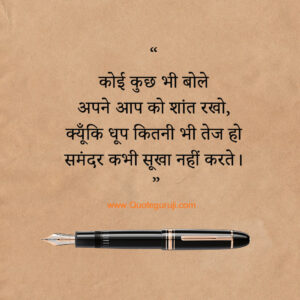 “
कोई कुछ भी बोले
अपने आप को शांत रखो,
क्यूँकि धूप कितनी भी तेज हो
समंदर कभी सूखा नहीं करते।
”
www.Quoteguruji.com